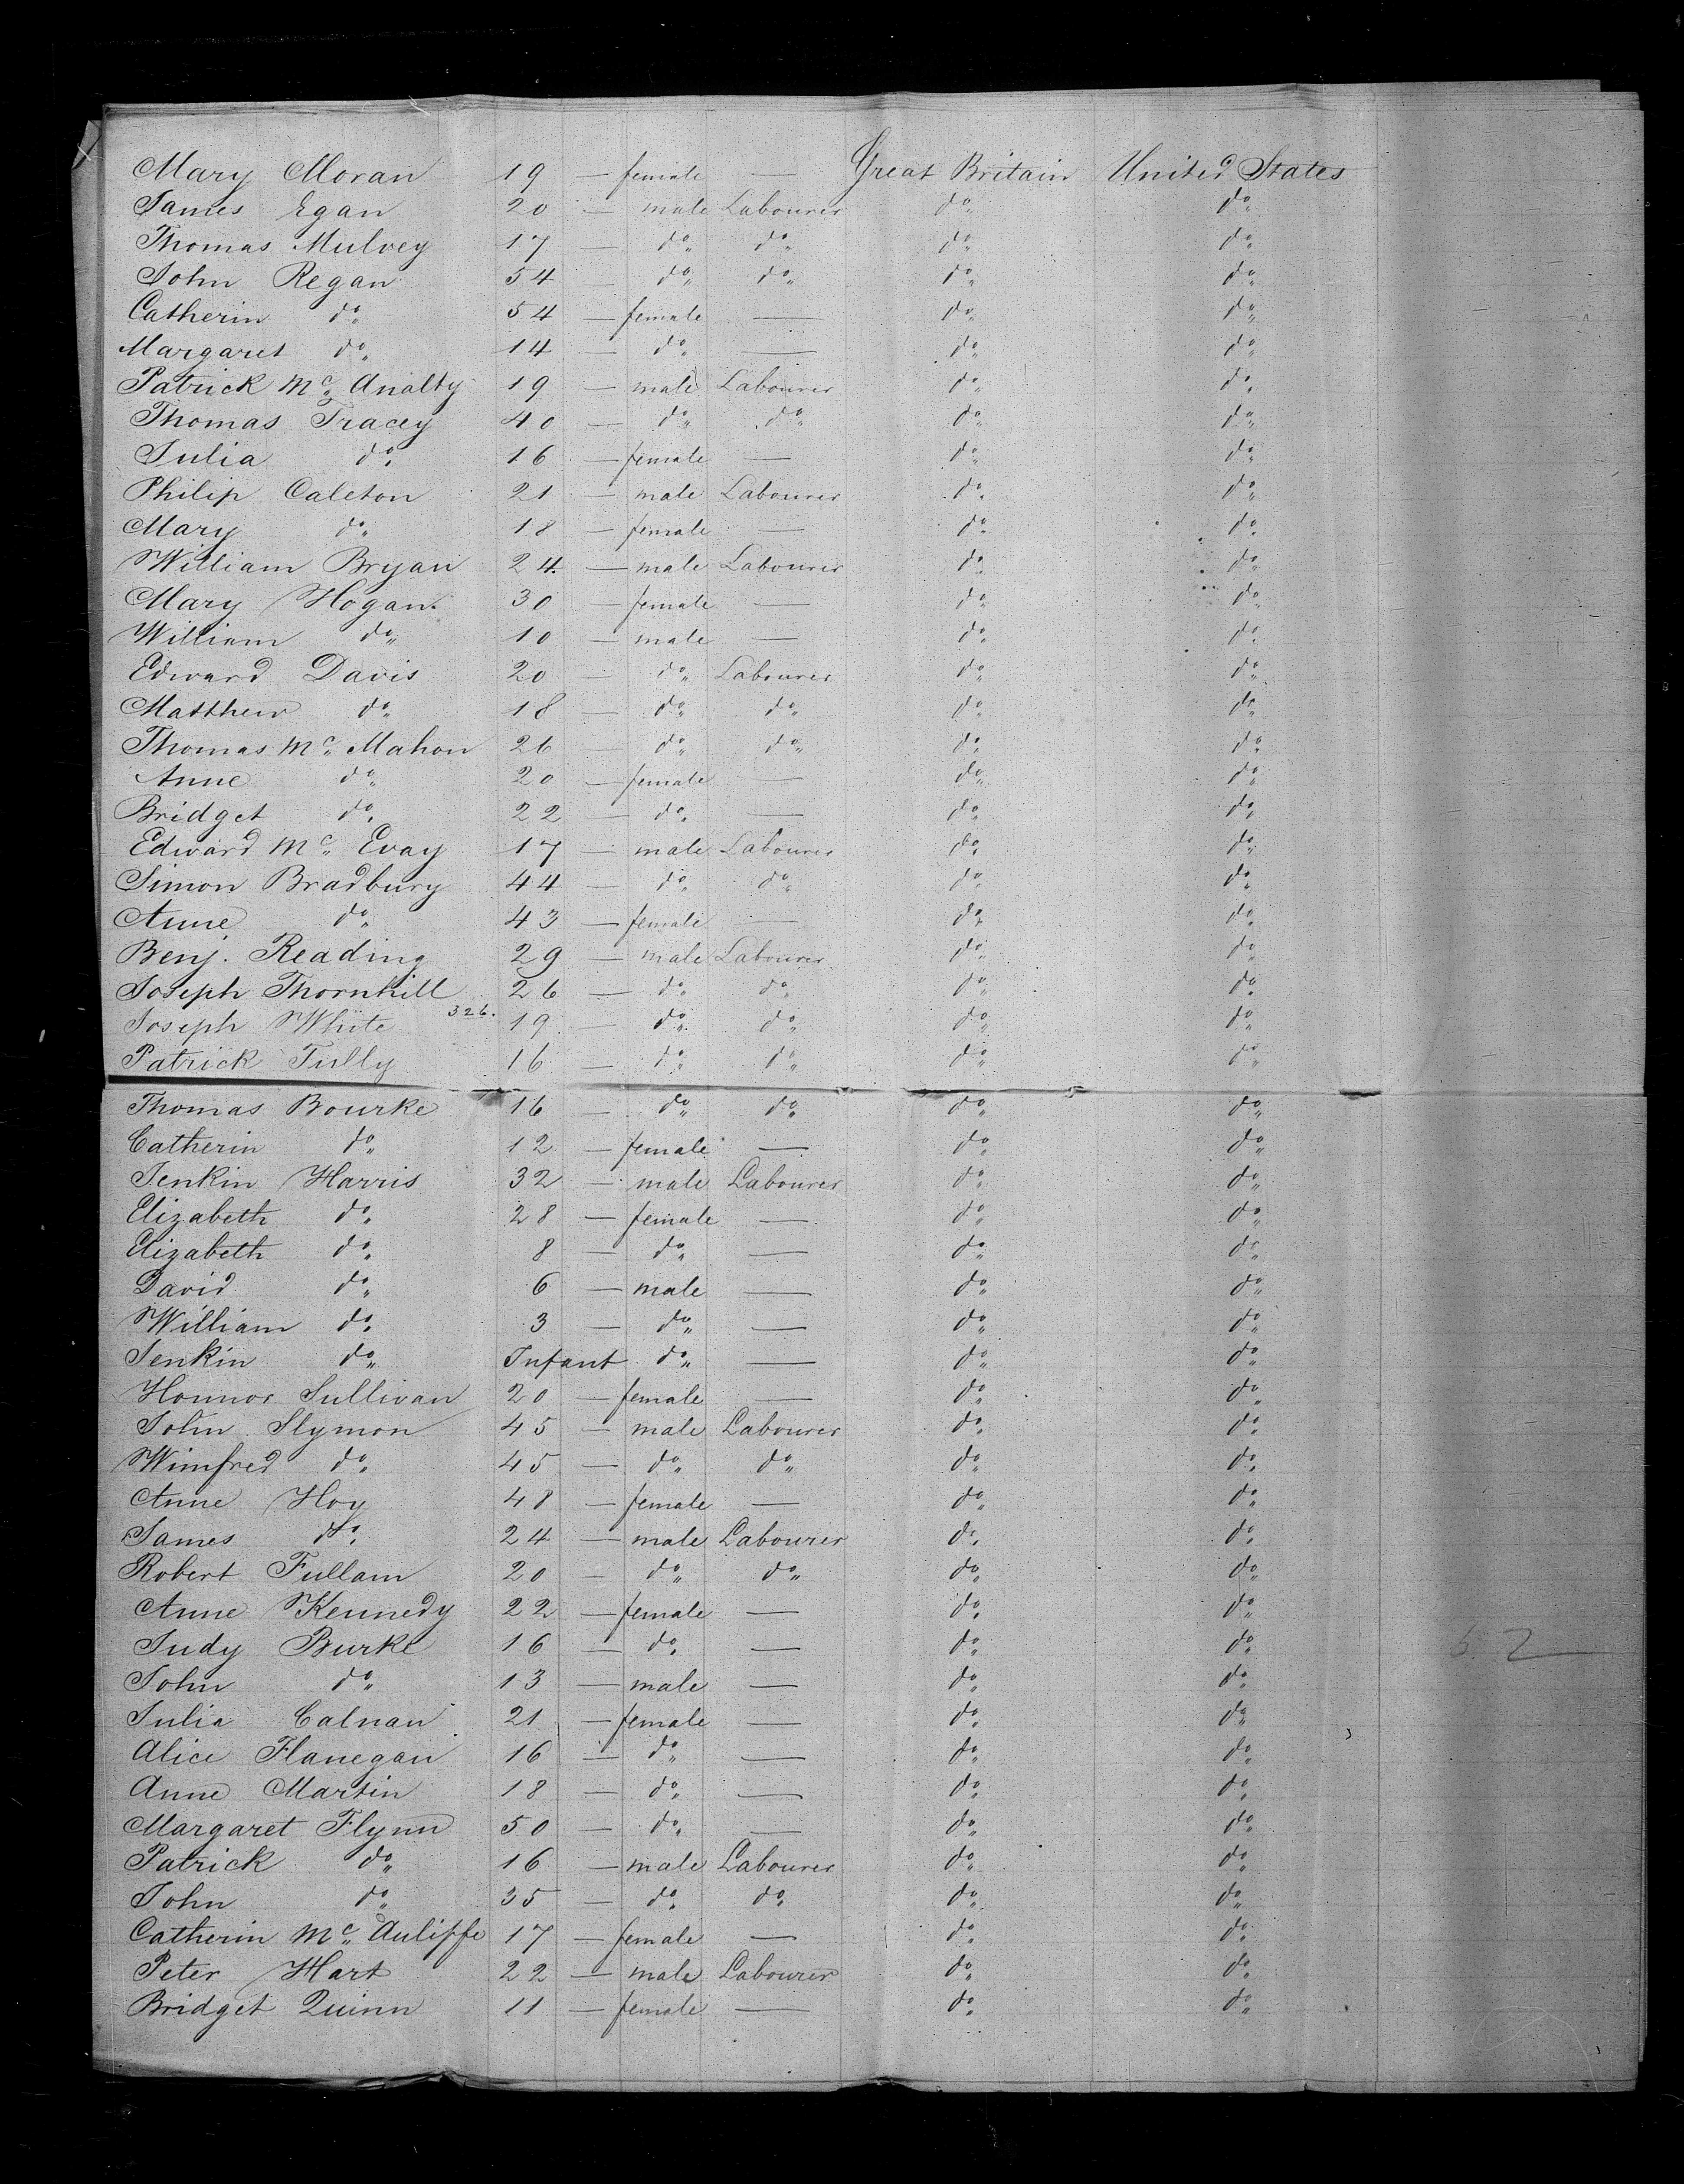 Mary Moran 19 — female — Great Britain United States
James Egan 20 — male Labourer do do
Thomas Mulvey 17 — do do do do
John Regan 54 — do do do do
Catherin do 54 — female — do do
Margaret do 14 — do — do do
Patrick Mc Analty 19 — male Labourer do do
Thomas Tracey 40 — do do do do
Julia do 16 — female — do do
Philip Caleton 21 — male Labourer do do
Mary do 18 — female — do do
William Bryan 24 — male Labourer do do
Mary Hogan 30 — female — do do
William do 10 — male — do do
Edward Davis 20 — do Labourer do do
Matthew do 18 — do do do do
Thomas Mc Mahon 26 — do do do do
Anne do 20 — female — do do
Bridget do 22 — do — do do
Edward Mc Evay 17 — male Labourer do do
Simon Bradbury 44 — do do do do
Anne do 43 — female — do do
Benj. Reading 29 — male Labourer do do
Joseph Thornhill 26 — do do do do
Joseph White 326. 19 — do do do do
Patrick Tully 16 — do do do do
Thomas Bourke 16 — do do do do
Catherin do 12 — female — do do
Jenkin Harris 32 — male Labourer do do
Elizabeth do 28 — female — do do
Elizabeth do 8 — do — do do
David do 6 — male — do do
William do 3 — do — do do
Jenkin do Infant do — do do
Honnor Sullivan 20 — female — do do
John Slymon 45 — male Labourer do do
Winifred do 45 — do do do do
Anne Hoy 48 — female — do do
James do 24 — male Labourer do do
Robert Fullam 20 — do do do do
Anne Kennedy 22 — female — do do
Judy Burke 16 — do — do do
John do 13 — male — do do
Julia Calnan 21 — female — do do
Alice Flanegan 16 — do — do do
Anne Martin 18 — do — do do
Margaret Flynn 50 — do — do do
Patrick do 16 — male Labourer do do
John do 35 — do do do do
Catherin Mc Auliffe 17 — female — do do
Peter Hart 22 — male Labourer do do
Bridget Quinn 11 — female — do do